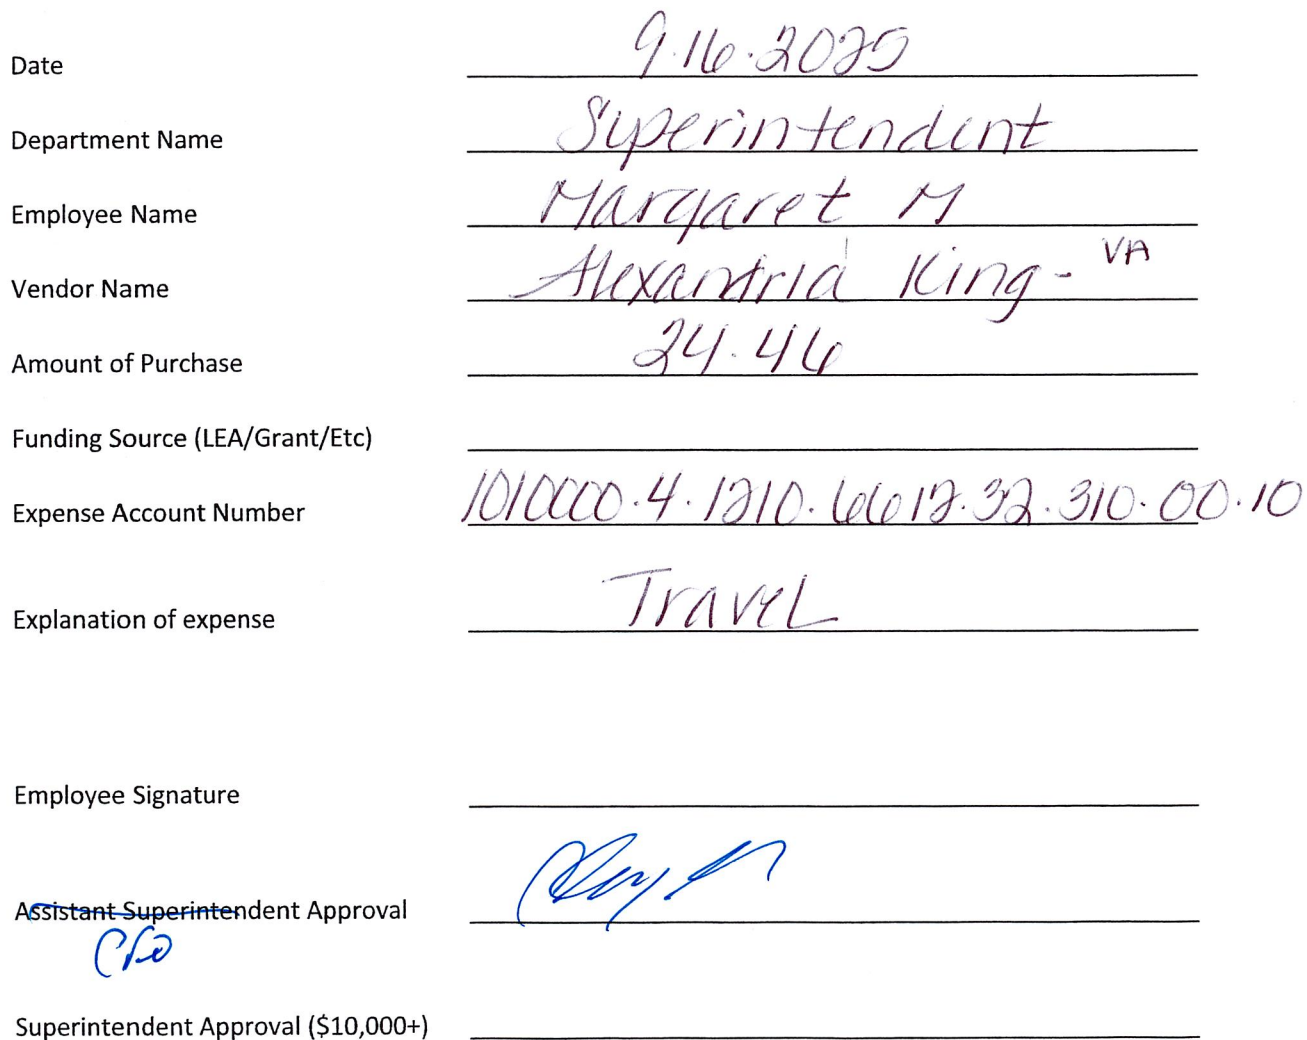 Date 9.16.2025
Department Name Superintendent
Employee Name Margaret M
Vendor Name Alexandria King- VA
Amount of Purchase 24.46
Funding Source (LEA/Grant/Etc)
Expense Account Number 1010000.4.1210.6612.32.310.00.10
Explanation of expense Travel
Employee Signature
Assistant Superintendent Approval
CFO
Superintendent Approval ($10,000+)